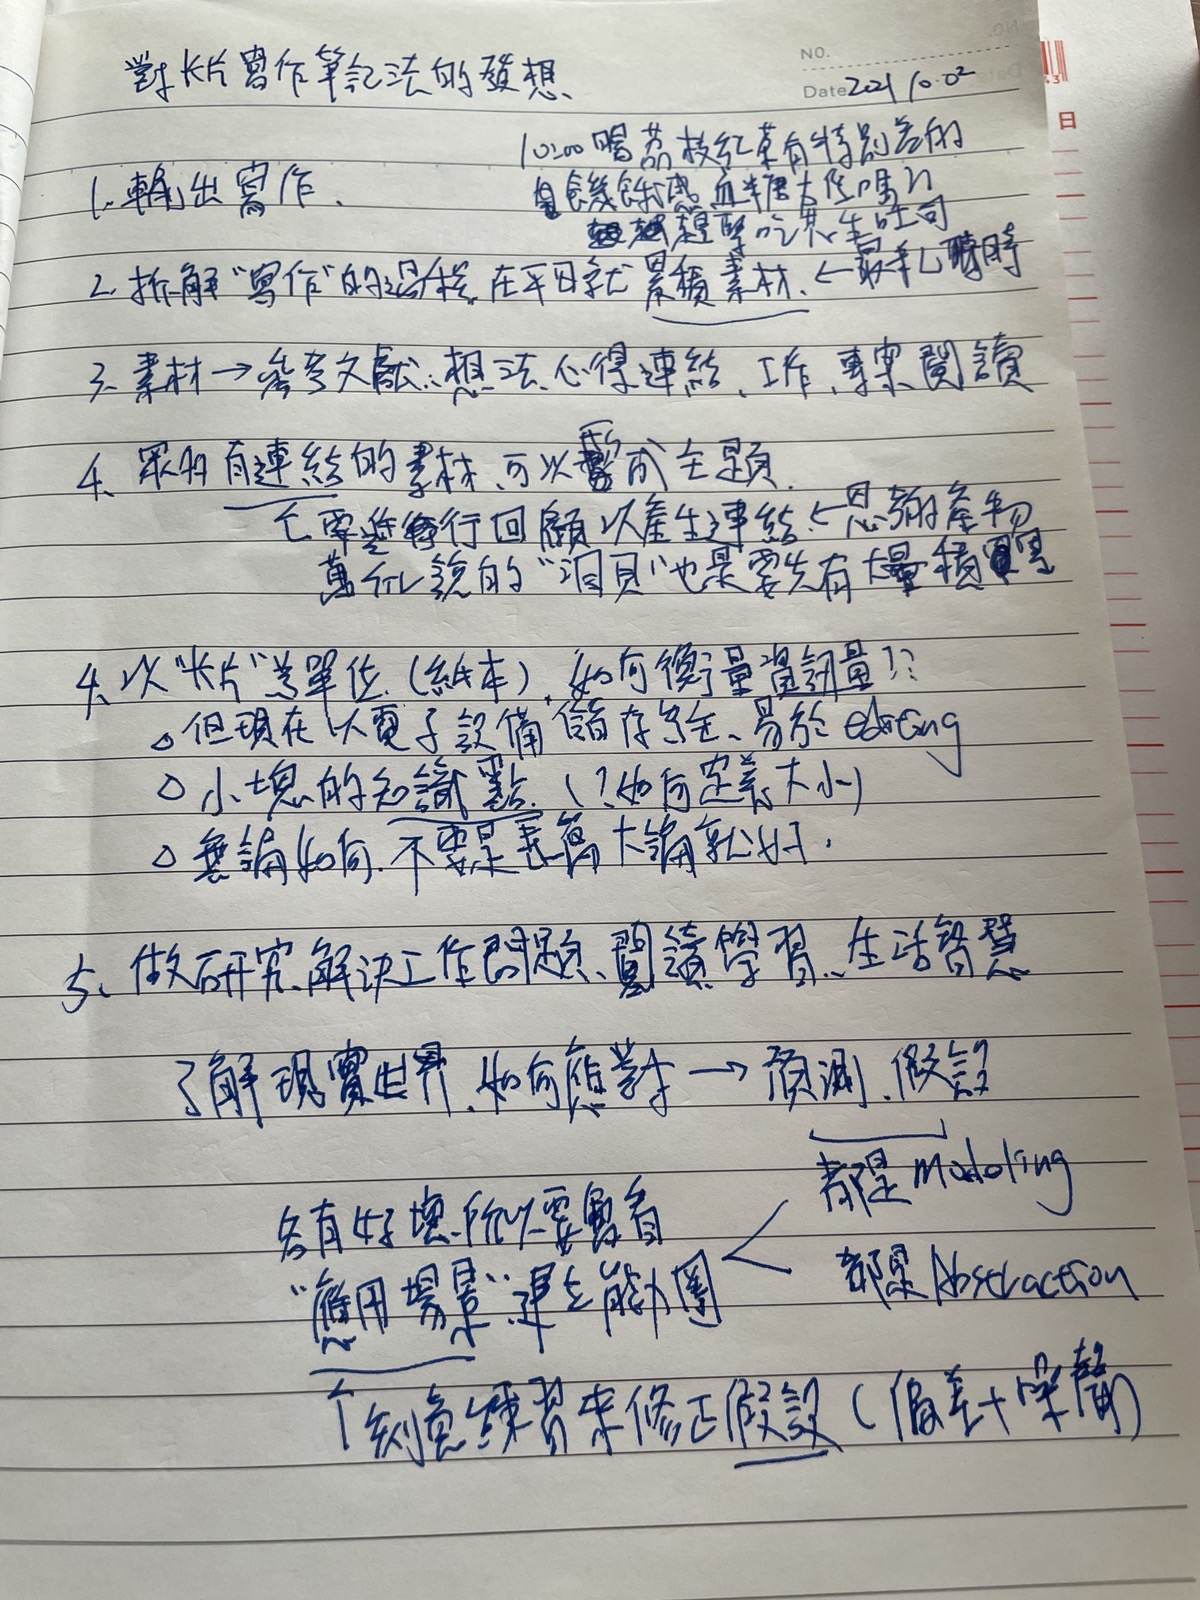 對卡片寫作筆記法的發想、
NO.
Date 2021 10.02
10:00 喝荔枝紅茶有特別差的
飢餓感 血糖太低嗎??
趕緊吃花生吐司
1. 輸出寫作、
2. 拆解"寫作"的過程, 在平日就累積素材. ← 最花時
3. 素材→參考文獻、想法、心得連結、工作、專案閱讀
4、眾多有連結的素材、可以形成主題.
需進行回顧以產生連結、← 思緒產物
萬 說的"洞見"也是要先有大量積累
4、以"卡片"為單位 (紙本), 如何衡量資訊量??
○ 但現在以電子設備儲存為主、易於 editing
○ 小塊的知識點. (?如何定義大小)
○ 無論如何. 不要是長篇大論就好.
5、做研究、解決工作問題、閱讀學習、生活智慧
了解現實世界、如何應對 → 預測、假設
都是 modeling
都是 Abstraction
各有好壞、所以要看
"應用場景"、建立能力圈
↑ 刻意練習來修正假設 (偏差+噪聲)
日